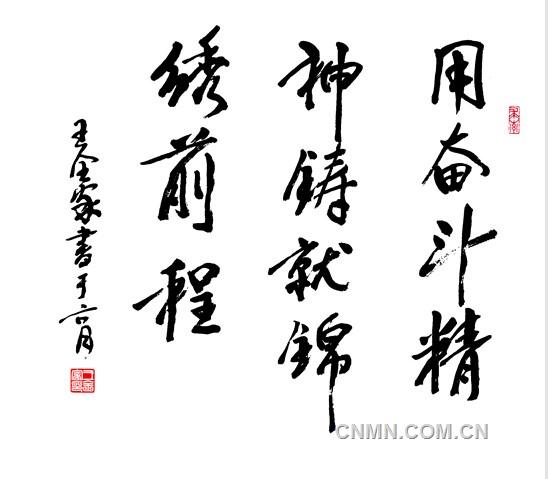 用奋斗精
神铸就锦
绣前程
王金家书于六月
CNMN.COM.CN